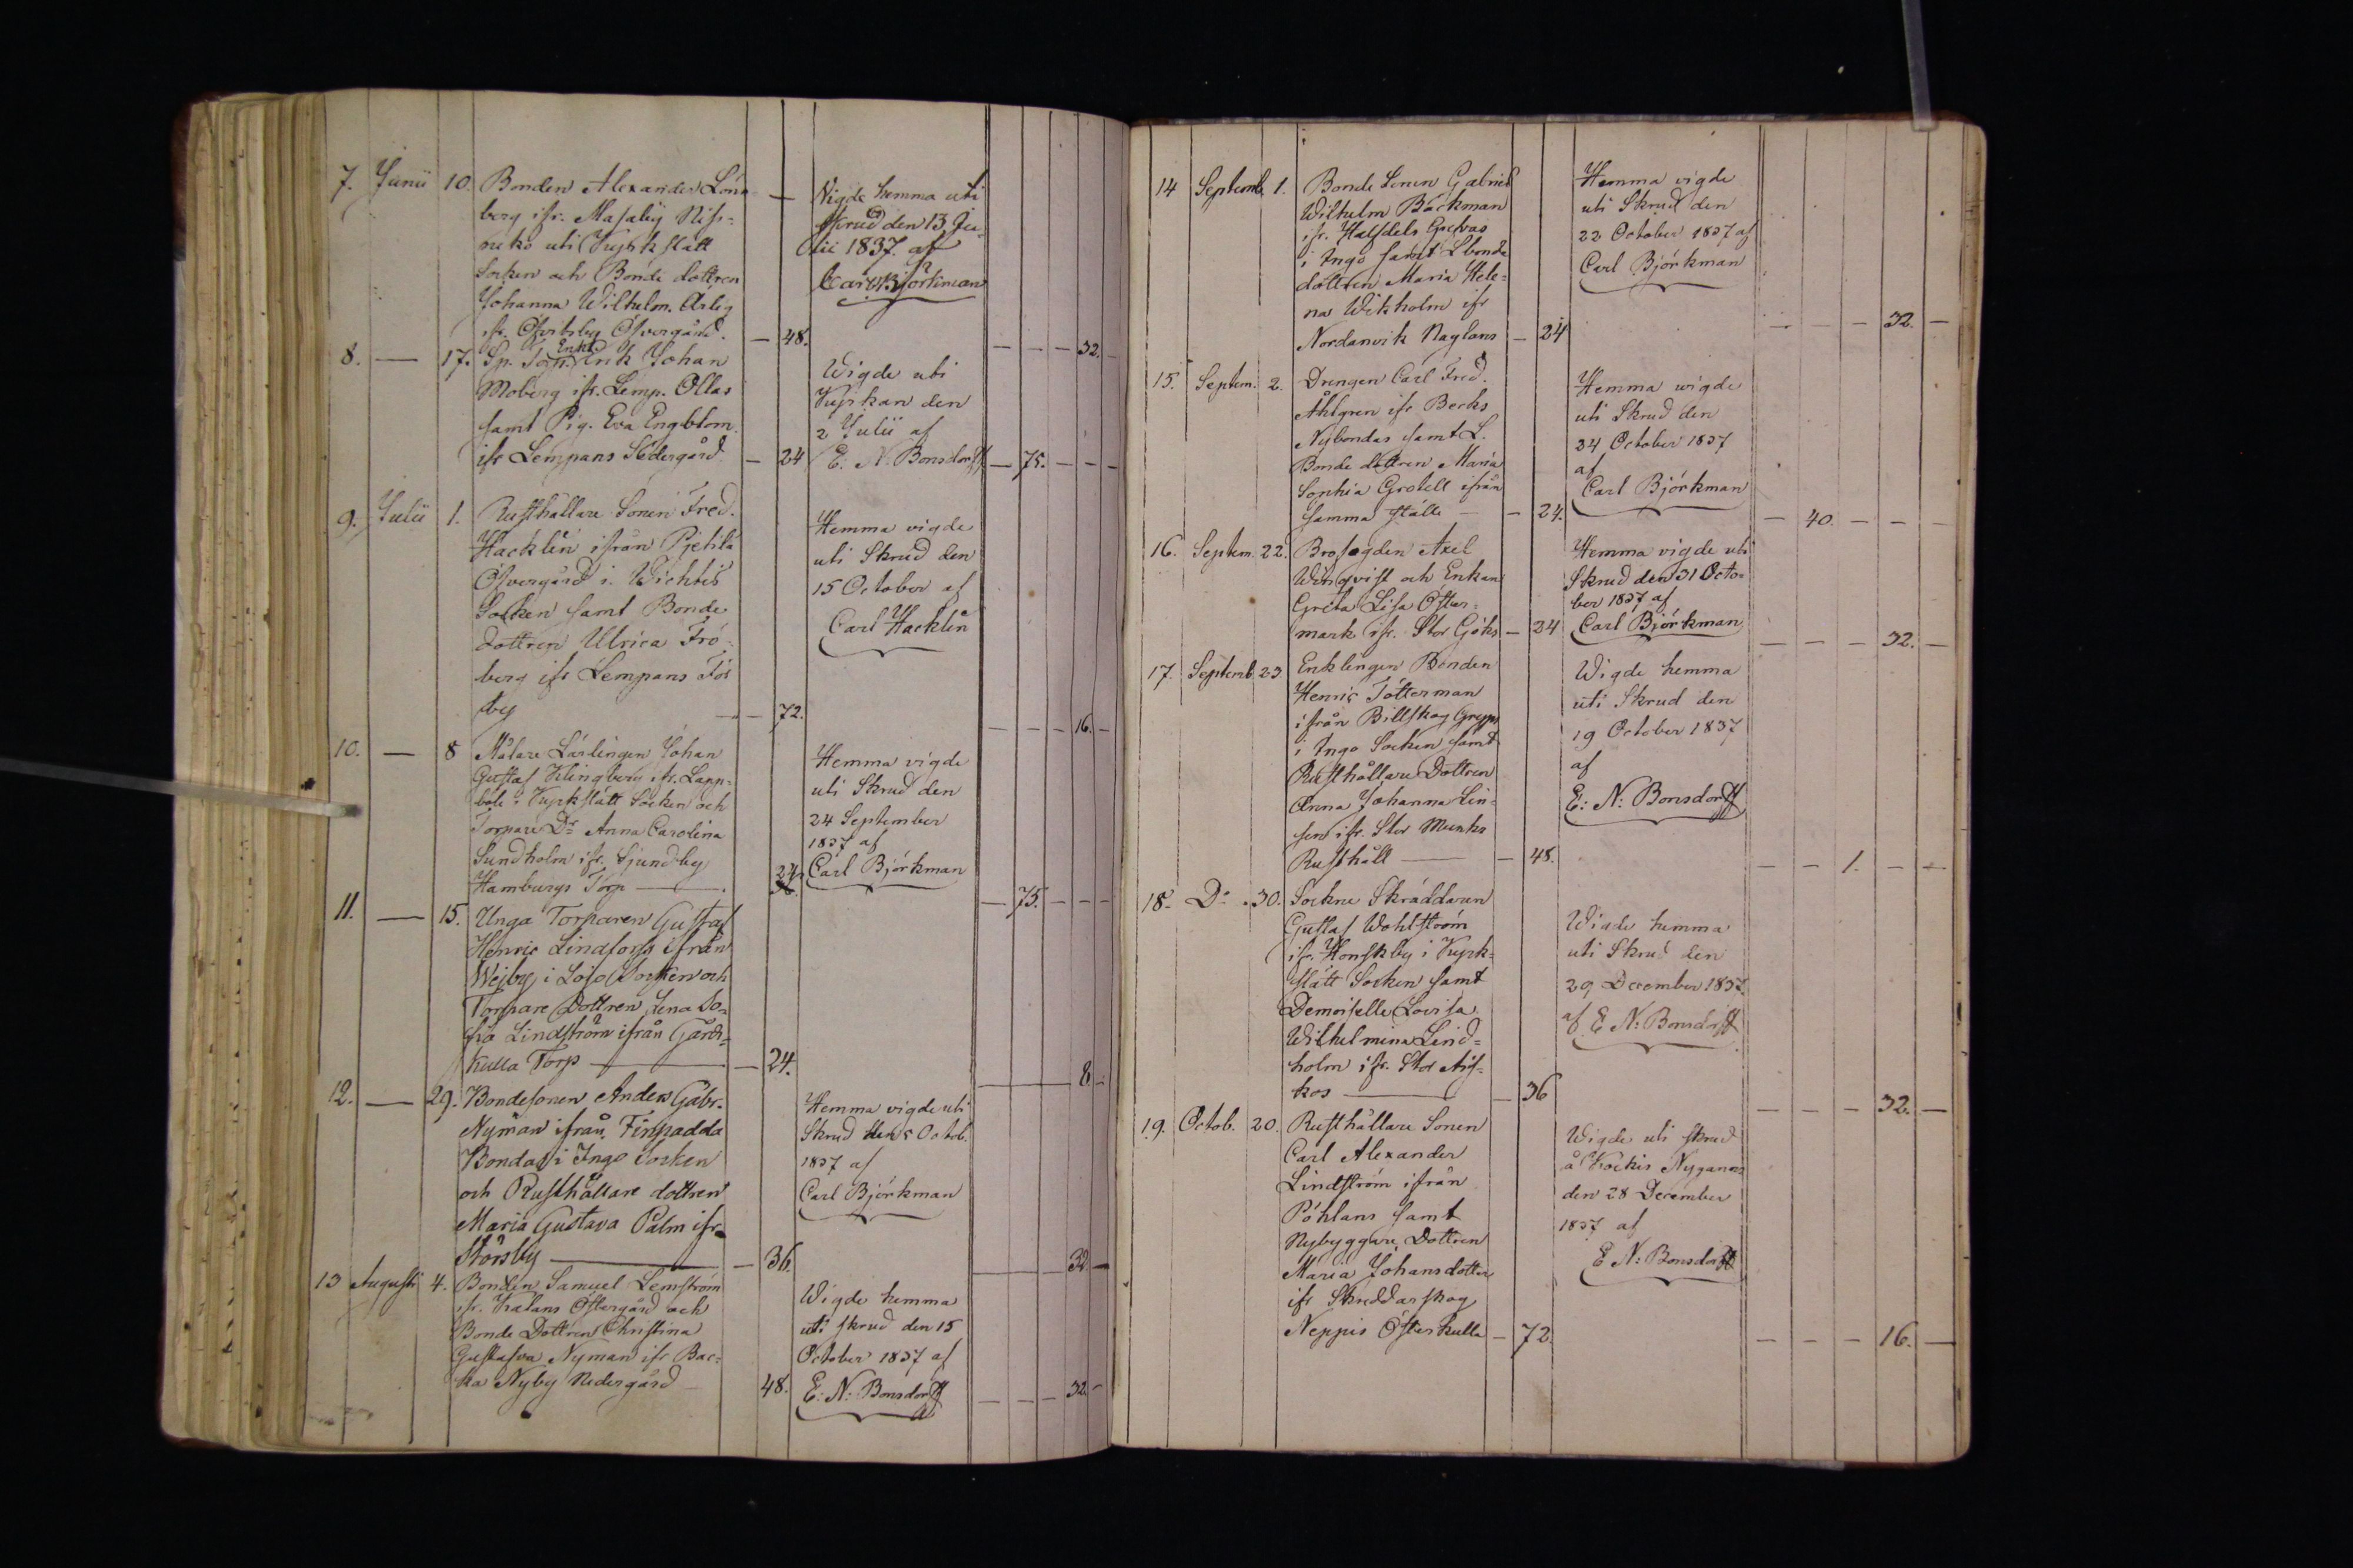 7. Junii 10. Bonden Alexander Lön-
berg ifr. Masaby Niss-
neko uti Kyrkslätt
Socken och Bonde dottren
Johanna Wilhelm. Ärlig
ifr. Öfvergård. — 48.
Vigde hemma uti
skrud den 13 Ju-
lii 1837. af
Carl Björkman
32.
8. — 17. Sp. Torp. Enkl. Erik Johan
Moberg ifr. Lemp. Ollas
samt Pig. Eva Engblom
ifr Lempans Södergård — 24
Wigde uti
Kyrkan den
2 Julii af
E. N. Bonsdorff — 75. — — —
9. Julii 1. Rusthållare Sonen Fred.
Hacklin ifrån Pjetilä
Öfvergård i Wichtis
Socken samt Bonde
dottren Ulrica Frö-
berg ifr Lempans Tös
by — 72.
Hemma vigde
uti Skrud den
15 October af
Carl Hacklin
16.
10. — 8 Målare Lärlingen Johan
Gustaf Klingberg ifr. Lapp-
böle i Kyrkslätt Socken och
Torpare Dr Anna Carolina
Sundholm ifr. Sjundby
Hamburgs Torp — 24.
Hemma vigde
uti Skrud den
24 September
1837 af
Carl Björkman
75.
11. — 15. Unga Torparen Gustaf
Henric Lindforss ifrån
Wejby i Lojo Socken och
Torpare Dottren Lena So-
fia Lindström ifrån Gårds-
kulla Torp — 24.
8
12. — 29. Bondesonen Anders Gabr.
Nyman ifrån Finpadda
Bondas i Ingo Socken
och Rusthållare dottren
Maria Gustava Palm ifr.
Störsby — 36.
Hemma vigde uti
Skrud den 5 Octob.
1837 af
Carl Björkman
32
13 Augusti 4. Bonden Samuel Lemström
ifr. Kalans Östergård och
Bonde Dottren Christina
Gustafva Nyman ifr Bac-
ka Nyby Nedergård 48.
Wigde hemma
uti skrud den 15
October 1837 af
E: N: Bonsdorff
32
14 Septemb. 1. Bonde Sonen Gabriel
Wilhelm Bäckman
ifr. Halfdels Grefvas
i Ingo samt L bonde
dottren Maria Hele-
na Wikholm ifr
Nordanvik Naglans — 24
Hemma vigde
uti Skrud den
22 October 1837 af
Carl Björkman
32.
15. Septem. 2. Drengen Carl Fred.
Åhlgren ifr Becks
Nybondas samt L.
Bonde dottren Maria
Sophia Grotell ifrån
samma ställe — 24.
Hemma vigde
uti Skrud den
24 October 1837
af
Carl Björkman
40.
16. Septem. 22. Brofogden Axel
Winqvist och Enkan
Greta Lisa Öster-
mark ifr. Stor Göks — 24
Hemma vigde uti
Skrud den 31 Octo-
ber 1837 af
Carl Björkman
32.
17. Septemb. 23 Enklingen Bonden
Henric Tötterman
ifrån Billskog Grepps
i Ingo Socken samt
Rusthållare Dottren
Anna Johanna Lin-
sen ifr. Stor Munks
Rusthåll — 48.
Wigde hemma
uti Skrud den
19 October 1837
af
E: N: Bonsdorff
1.
18. Do. 30. Sockne Skräddaren
Gustaf Wohlström
ifr. Honskby i Kyrk-
slätt Socken samt
Demoiselle Lovisa
Wilhelmina Lind-
holm ifr. Stor Aijs-
kos — 36
Wigde hemma
uti Skrud den
29 December 1837.
af E N: Bonsdorff
32.
19. Octob. 20. Rusthållare Sonen
Carl Alexander
Lindström ifrån
Pöhlans samt
Nybyggare Dottren
Maria Johansdotter
ifr Skreddarskog
Neppis Österkulla — 72.
Wigde uti skrud
å Kockis Nygannas
den 28 December
1837 af
E N: Bonsdorff
16.